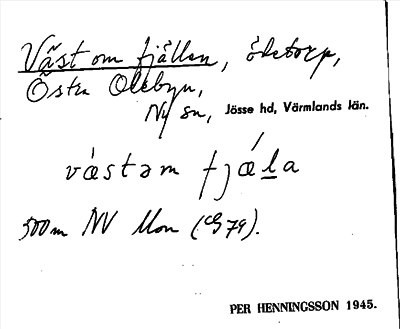 Väst om fjällen, ödetorp,
Östra Olebyn,
Ny sn, Jösse hd, Värmlands län.
vástəm fjǽla
500 m NV Mon
PER HENNINGSSON 1945.